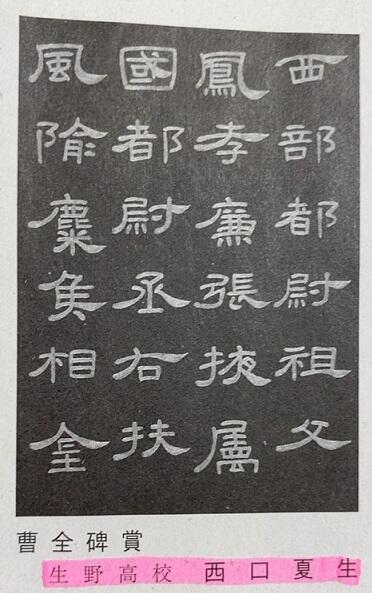 西部都尉祖父
鳳孝廉張掖属
國都尉丞右扶
風隃麋侯相金
曹全碑賞
生野高校 西口夏生